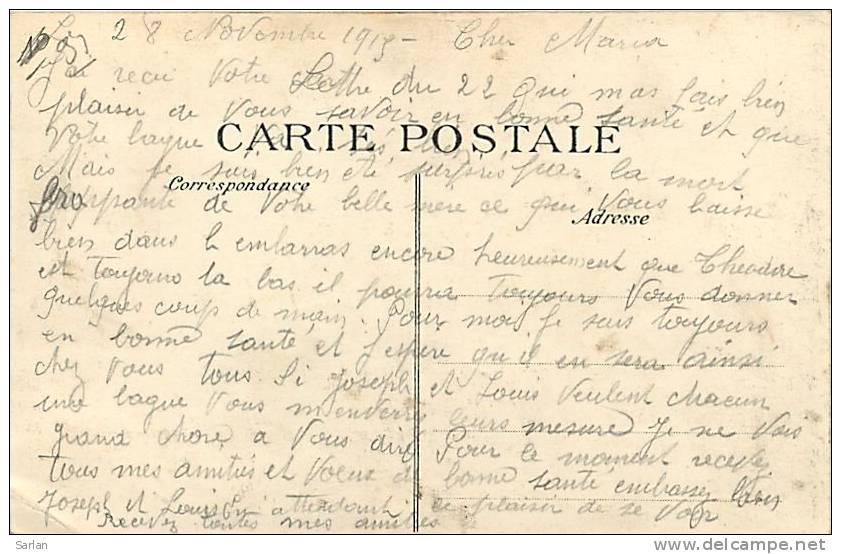 Le 28 Novembre 1915 - Cher Maria
J'ai recu Votre Lettre du 22 qui mas fais bien
plaisir de Vous savoir en bonne santé et que
Votre bague
CARTE POSTALE
Mais je suis bien été surpris par la mort
Correspondance
frapante de Votre belle mère ce qui Vous laisse
Adresse
bien dans l embarras encore heureusement que Theodore
est toujours la bas il pourra toujours Vous donner
quelques coup de main. Pour moi je suis toujours
en bonne santé et j'espere qu'il en sera ainsi
chez Vous tous Si Joseph et Louis veulent chacun
une bague Vous m enverré leurs mesure Je ne Vois
grand chose a Vous dire Pour le moment recevez
tous mes amitiés et Voeux de bonne santé embrassez bien
Joseph et Louis En attendant ce plaisir de se Voir
Recevez toutes mes amitiés
Sarlan
www.delcampe.net